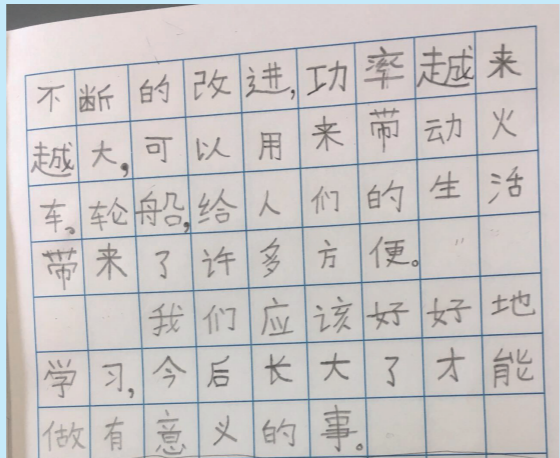 不断的改进,功率越来
越大,可以用来带动火
车。轮船,给人们的生活
带来了许多方便。
我们应该好好地
学习,今后长大了才能
做有意义的事。